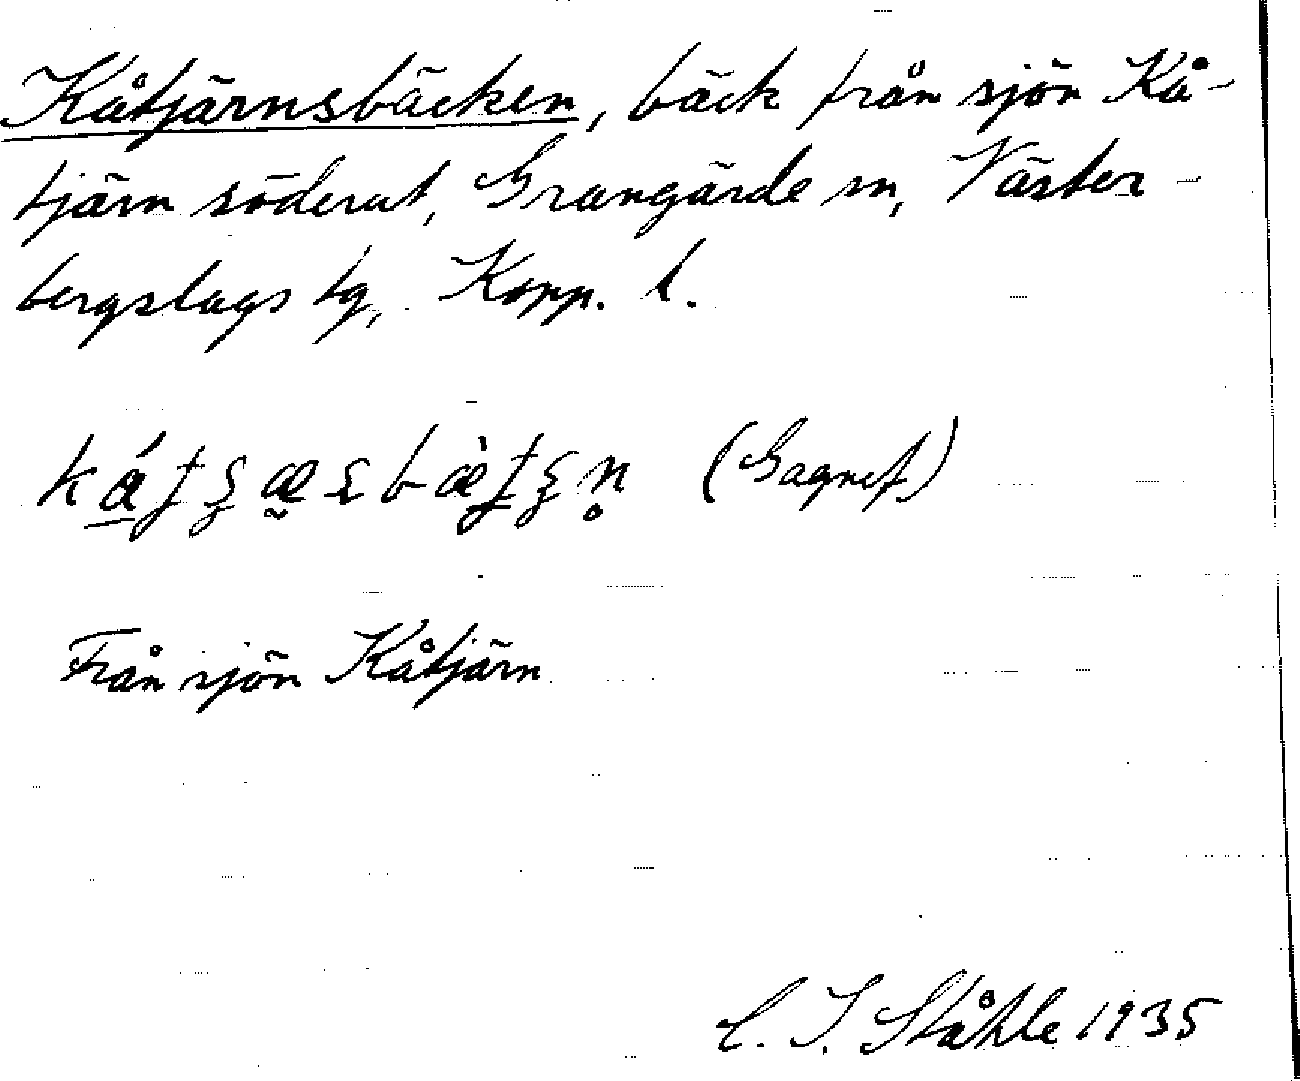 Kåtjärnsbäcken, bäck från sjön Kå-
tjärn söderut, Grangärde sn, Väster-
bergslags tg, Kopp. l.
(Gagnef)
Från sjön Kåtjärn
C. I. Ståhle 1935